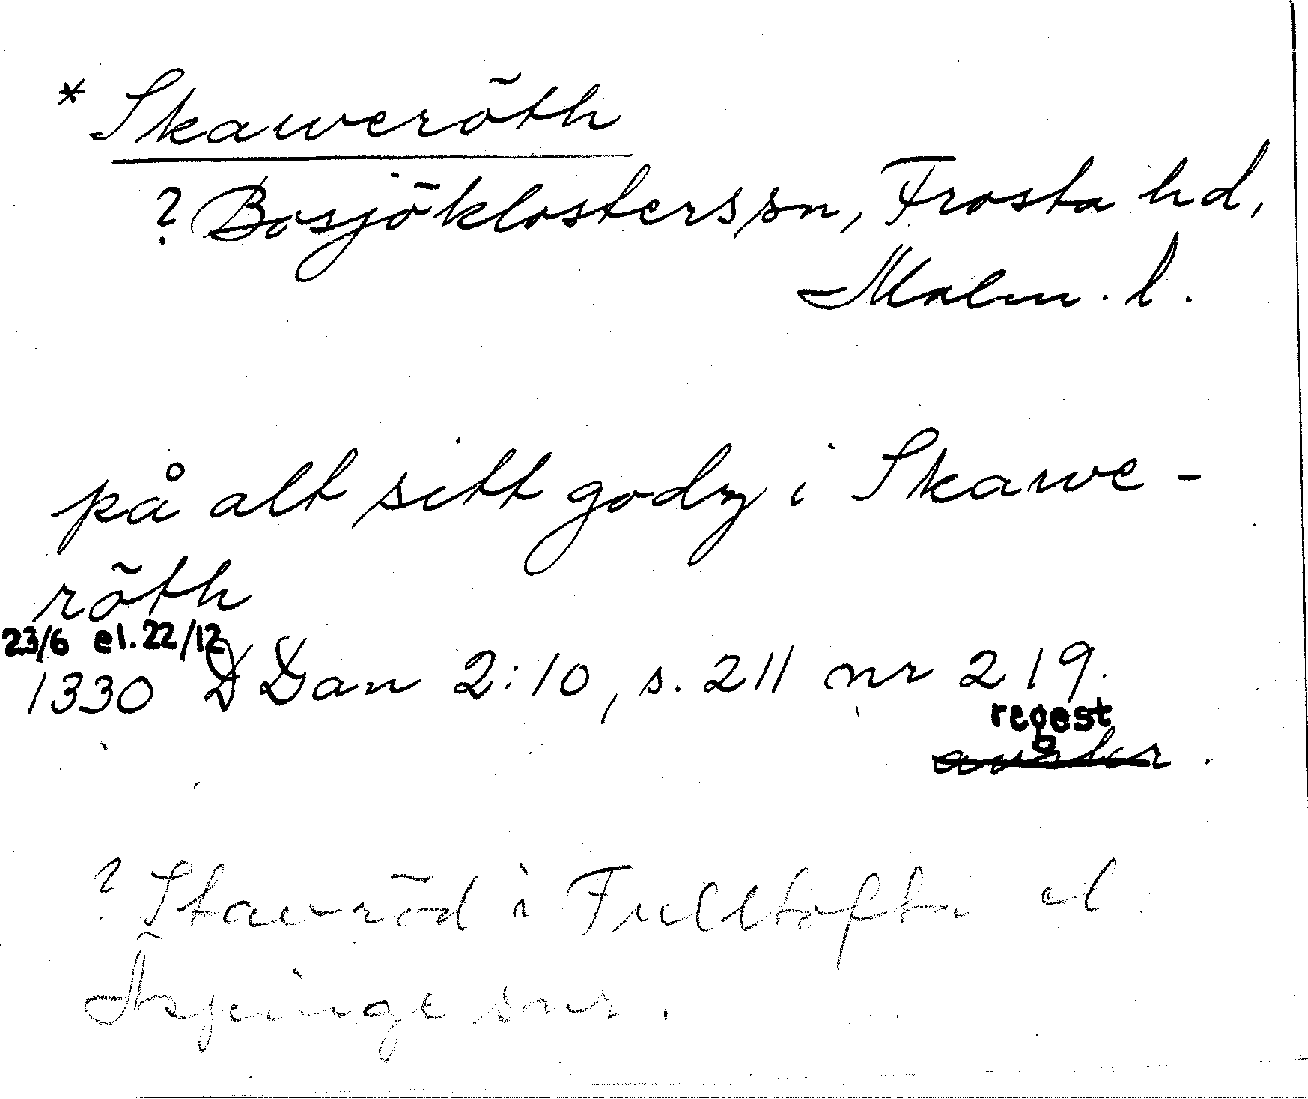 * Skaweröth
? Bosjöklosters sn, Frosta hd,
Malm. l.
på alt sitt godz i Skawe-
röth
23/6 el. 22/12
1330 DDan 2:10, s. 211 nr 219.
regest
? Stavröd i Fulltofta el.
Äspinge snr.